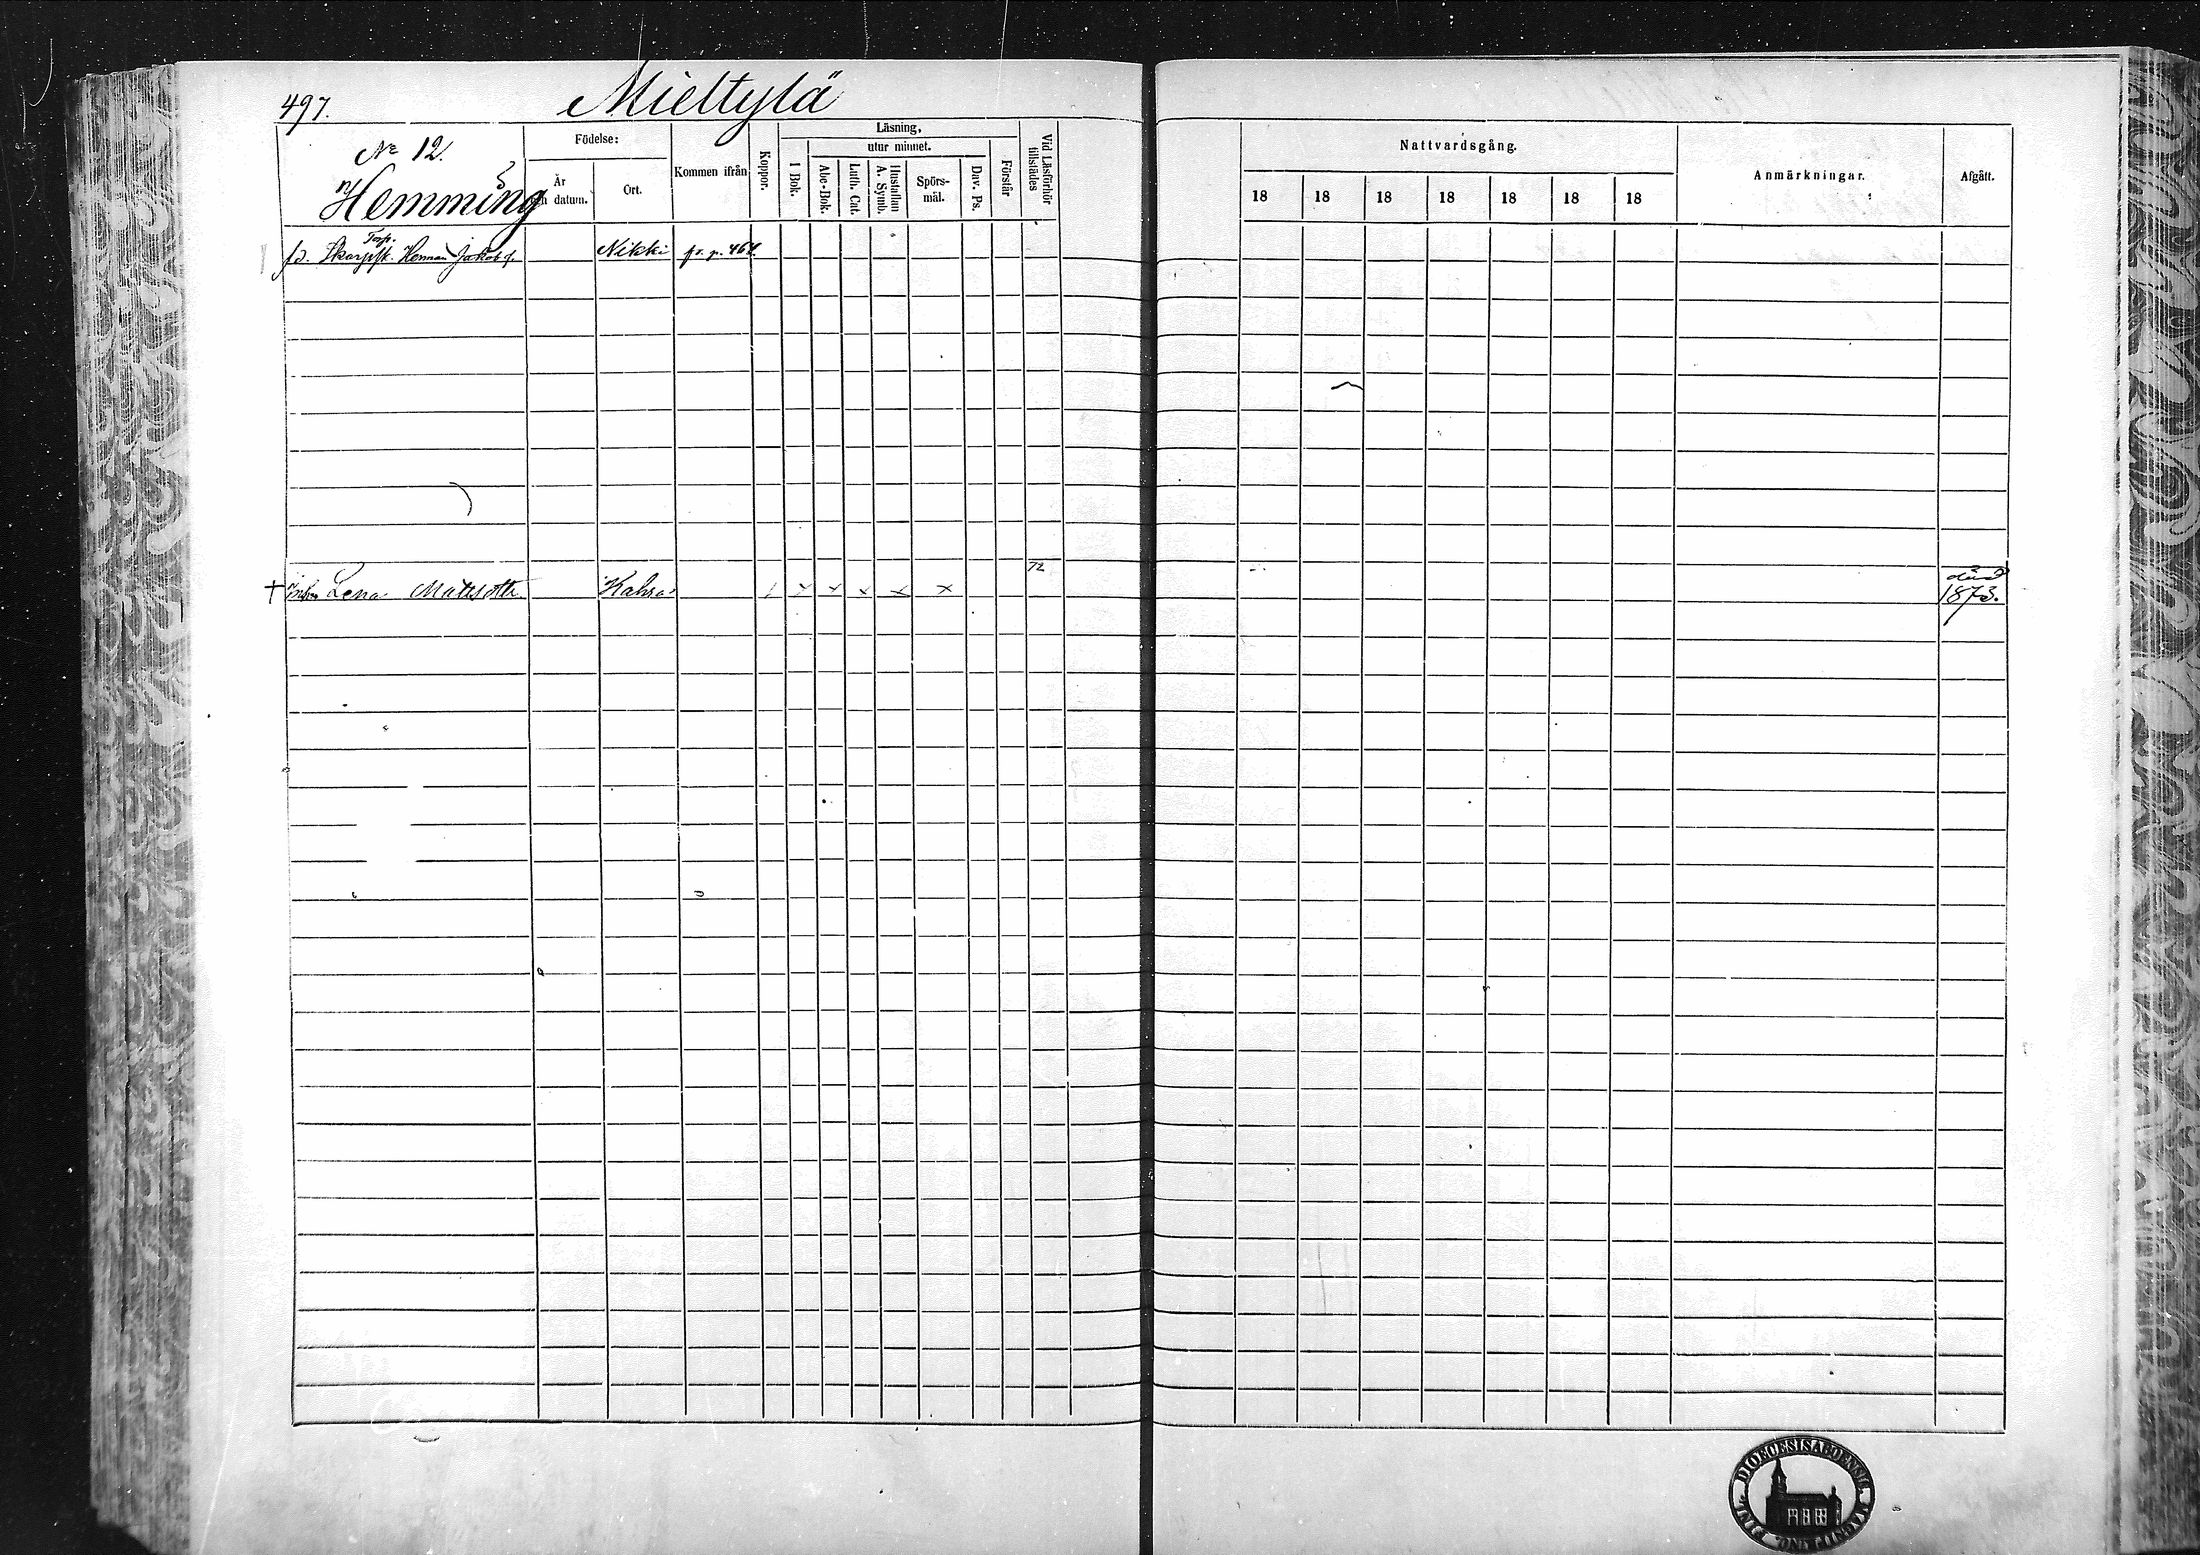 497. Mieltylä
No 12.
Hemming
Födelse:
År och datum.
Ort.
Kommen ifrån
Koppor.
Läsning,
utur minnet.
I Bok.
Abc-Bok.
Luth. Cat.
Hustaflan
A. Symb.
Spörs-
mål.
Dav. Ps.
Förstår
Vid Läsförhör
tillstädes
Nattvardsgång.
18 18 18 18 18 18 18
Anmärkningar.
Afgått.
Torp.
fd. Skarpsk. Herman Jakobs. Nikki fr. p. 464.
72
Lena Mattsdttr Kahra död
1873.